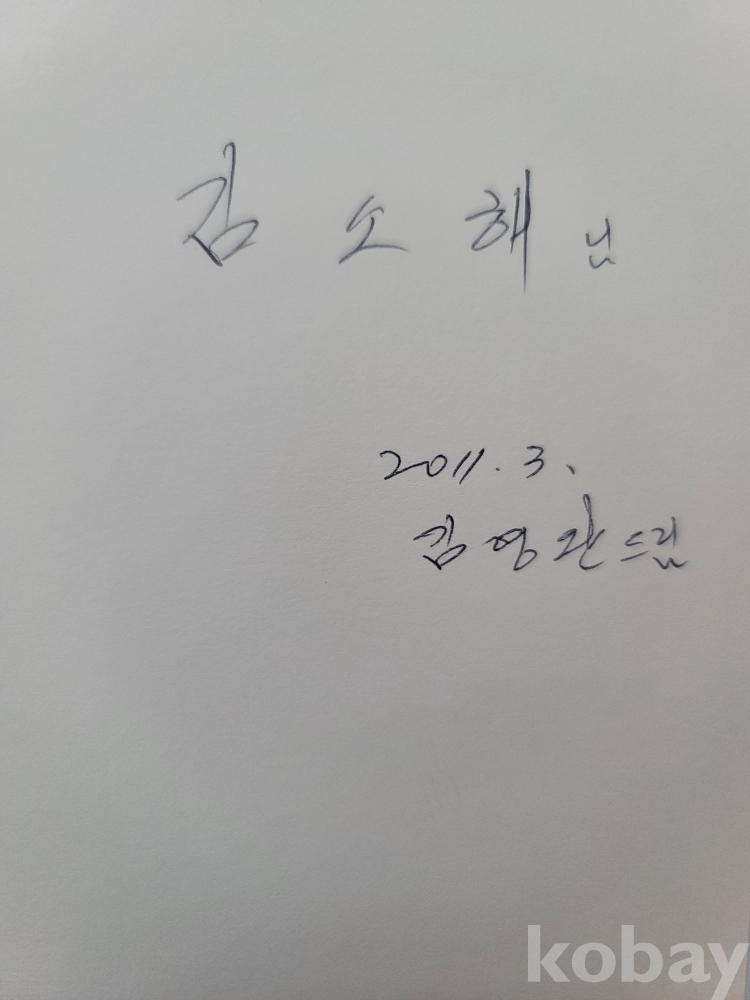 김 소 해 님
2011. 3.
김영관 드림
kobay